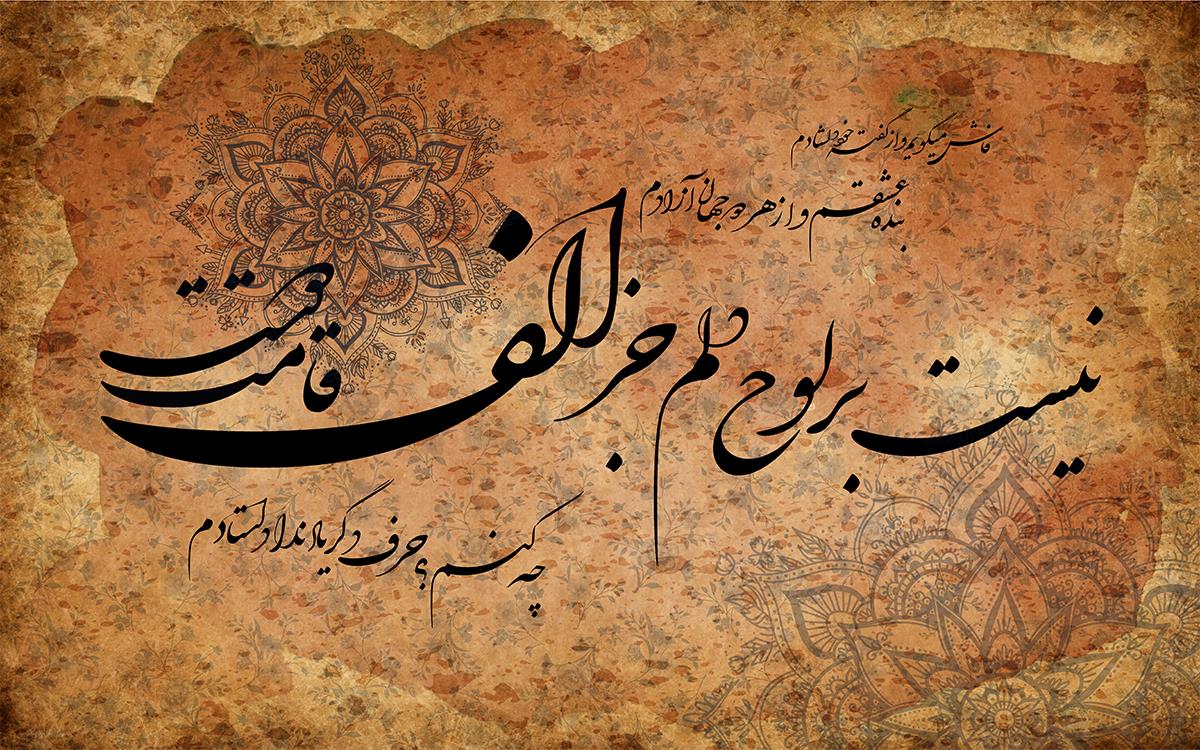 فاش میگویم و از گفته خود دلشادم
بنده عشقم و از هر دو جهان آزادم
نیست بر لوح دلم جز الف قامت دوست
چه کنم؟ حرف دگر یاد نداد استادم